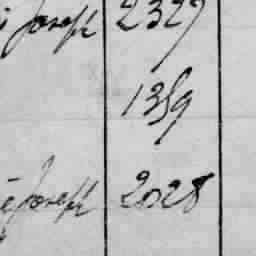 Joseph 2327
1359
Joseph 2028